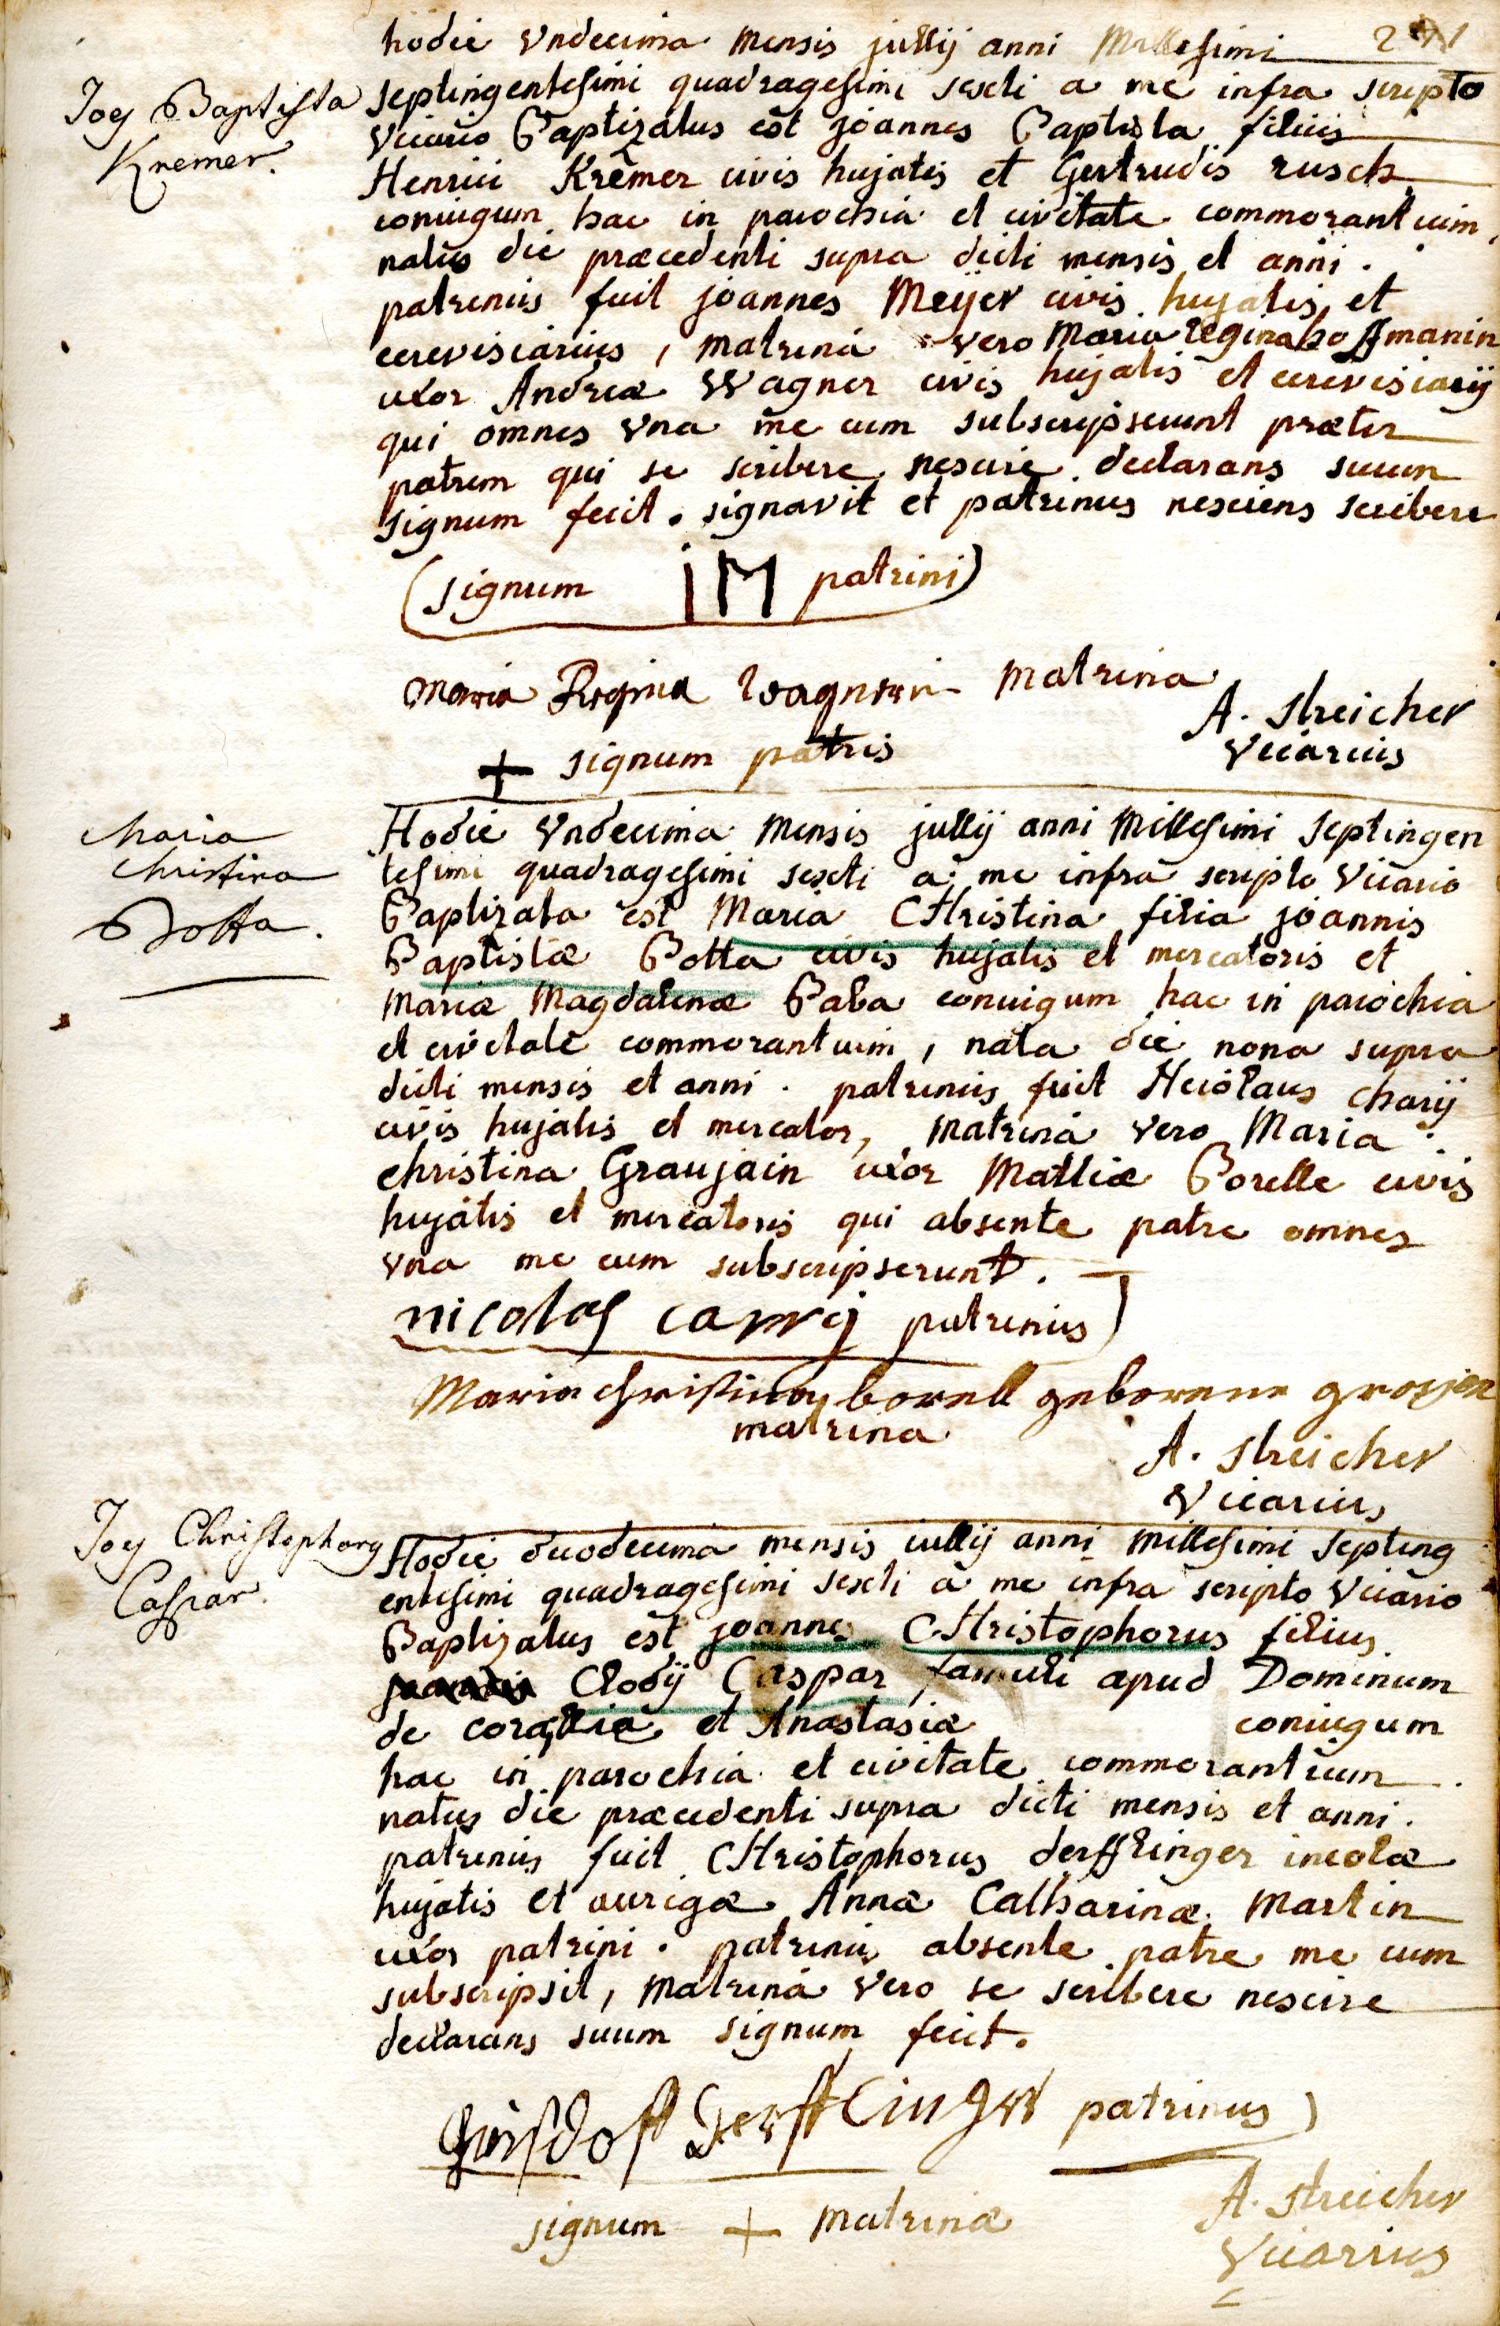 hodie vndecima mensis jullij anni Millesimi
Joes Baptista
Kremer.
septingentesimi quadragesimi sexti a me infra scripto
vicario Baptizatus est joannes Baptista filius
Henrici Kremer civis hujatis et Gertrudis rusch
coniugum hac in parochia et civitate commorantium,
natus die præcedenti supra dicti mensis et anni.
patrinus fuit joannes Meijer civis hujatis et
cerevisiarius, matrina vero Maria regina hoffmanin
uxor Andreæ Wagner civis hujatis et cerevisiarij
qui omnes vna me cum subscripserunt præter
patrem qui se scribere nescire declarans suum
signum fecit. signavit et patrinus nesciens scribere
(signum IM patrini)
Maria Regina Wagnerin matrina
A. Streicher
vicarius
+ signum patris
Maria
Christina
Botta.
Hodie vndecima Mensis jullij anni Millesimi septingen
tesimi quadragesimi sexti a me infra scripto vicario
Baptizata est Maria CHristina filia joannis
Baptistæ Botta civis hujatis et mercatoris et
Mariæ Magdalenæ Baba coniugum hac in parochia
et civitate commorantium, nata die nona supra
dicti mensis et anni. patrinus fuit Nicolaus charij
civis hujatis et mercator, matrina vero Maria
christina Graujain uxor Mathiæ Borelle civis
hujatis et mercatoris qui absente patre omnes
vna me cum subscripserunt.
nicolas carrij patrinus)
Maria christina borell geborene grosjen
matrina
A. Streicher
vicarius
Joes Christophorg
Caspar.
Hodie duodecima mensis iullij anni millesimi septing
entesimi quadragesimi sexti a me infra scripto vicario
Baptizatus est joannes CHristophorus filius
Clodij Caspar famuli apud Dominum
de et Anastasiæ coniugum
hac in parochia et civitate commorantium
natus die præcedenti supra dicti mensis et anni.
patrinus fuit CHristophorus derfflinger incolæ
hujatis et aurigæ Annæ Catharinæ Martin
uxor patrini. patrinus absente patre me cum
subscripsit, matrina vero se scribere nescire
declarans suum signum fecit.
Derfflinger patrinus)
signum + matrinæ
A. Streicher
vicarius